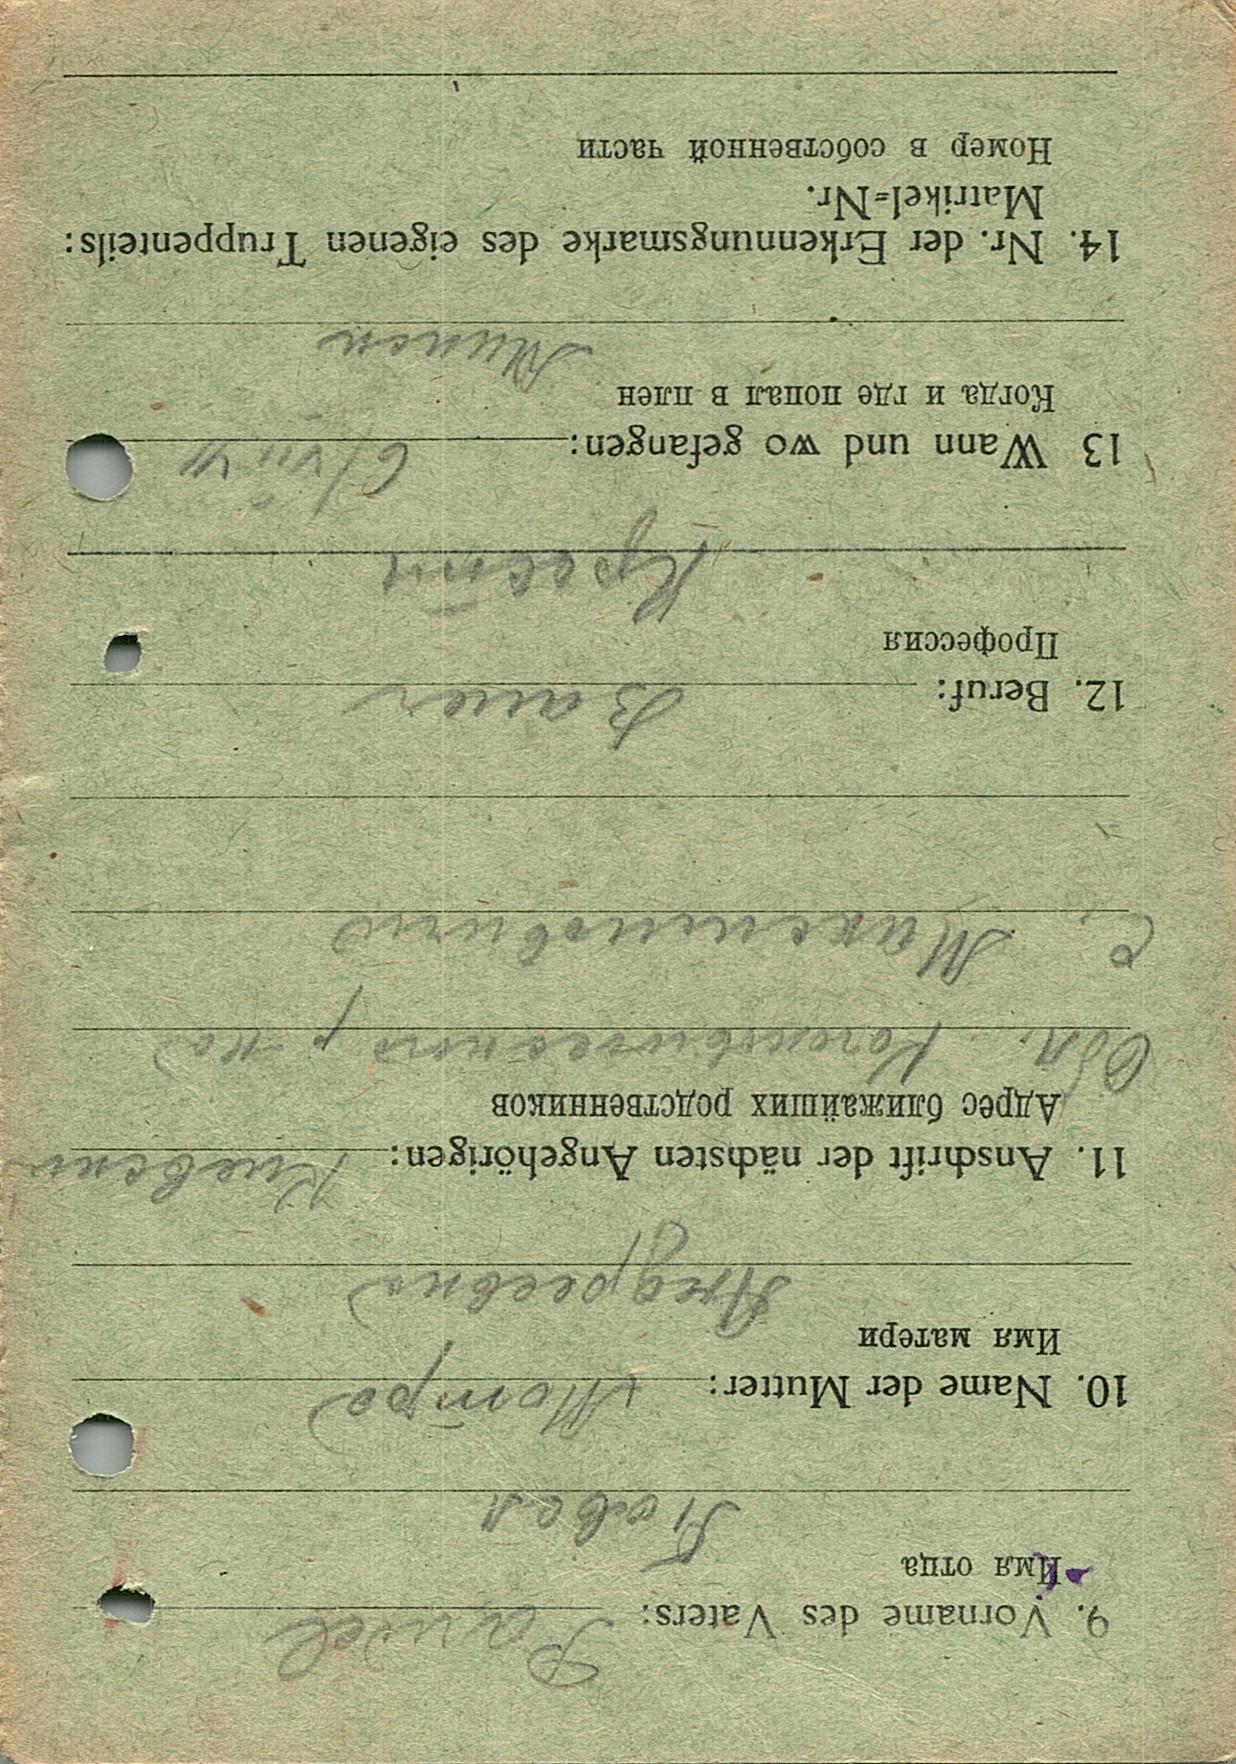 9. Vorname des Vaters: Pawel
Имя отца
Павел
10. Name der Mutter: Мотра
Имя матери
Андреевна
11. Anschrift der nächsten Angehörigen: Киевская
Адрес ближайших родственников
Обл. р-на
с. Максимовичи
12. Beruf: Bauer
Профессия
Крестя
13 Wann und wo gefangen: 6/VII 41
Когда и где попал в плен
Минск
14. Nr. der Erkennungsmarke des eigenen Truppenteils:
Matrikel=Nr.
Номер в собственной части